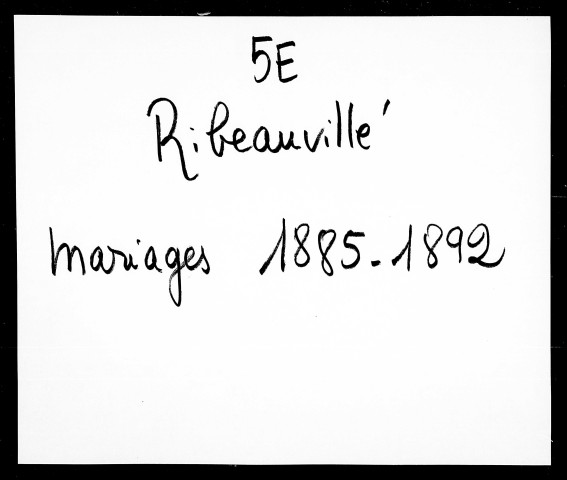 5E
Ribeauvillé
mariages 1885-1892